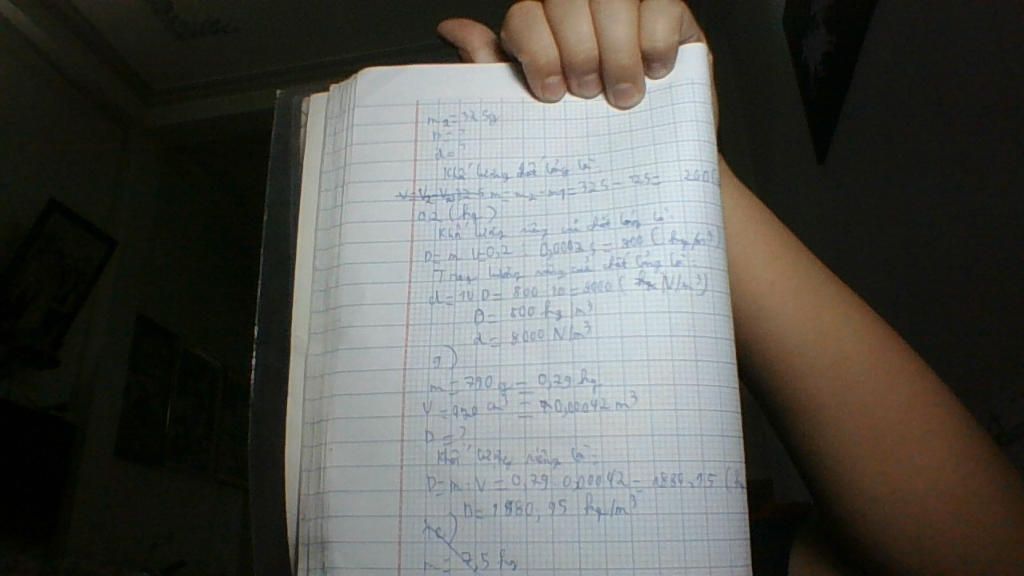 m₂ = 325g
D = ?
d = ?
Khối lượng chất lỏng là
m = m₂ - m₁ = 325 - 125 =
0,2 (kg)
Khối lượng riêng của chất lỏng là:
D = m : V = 0,2 : 0,00025 = 800 (kg/m³)
Trọng lượng riêng của chất lỏng là
d = 10 D = 800 . 10 = 8000 ( N/m³)
D = 800 kg/m³
d = 8000 N/m³
9)
m = 790 g = 0,79 kg
V = 420 cm³ = 0,00042 m³
D = ?
Khối lượng riêng là:
D = m : V = 0,79 : 0,00042 = 1880,95 (
D = 1880,95 kg/m³
m = 7,5 kg